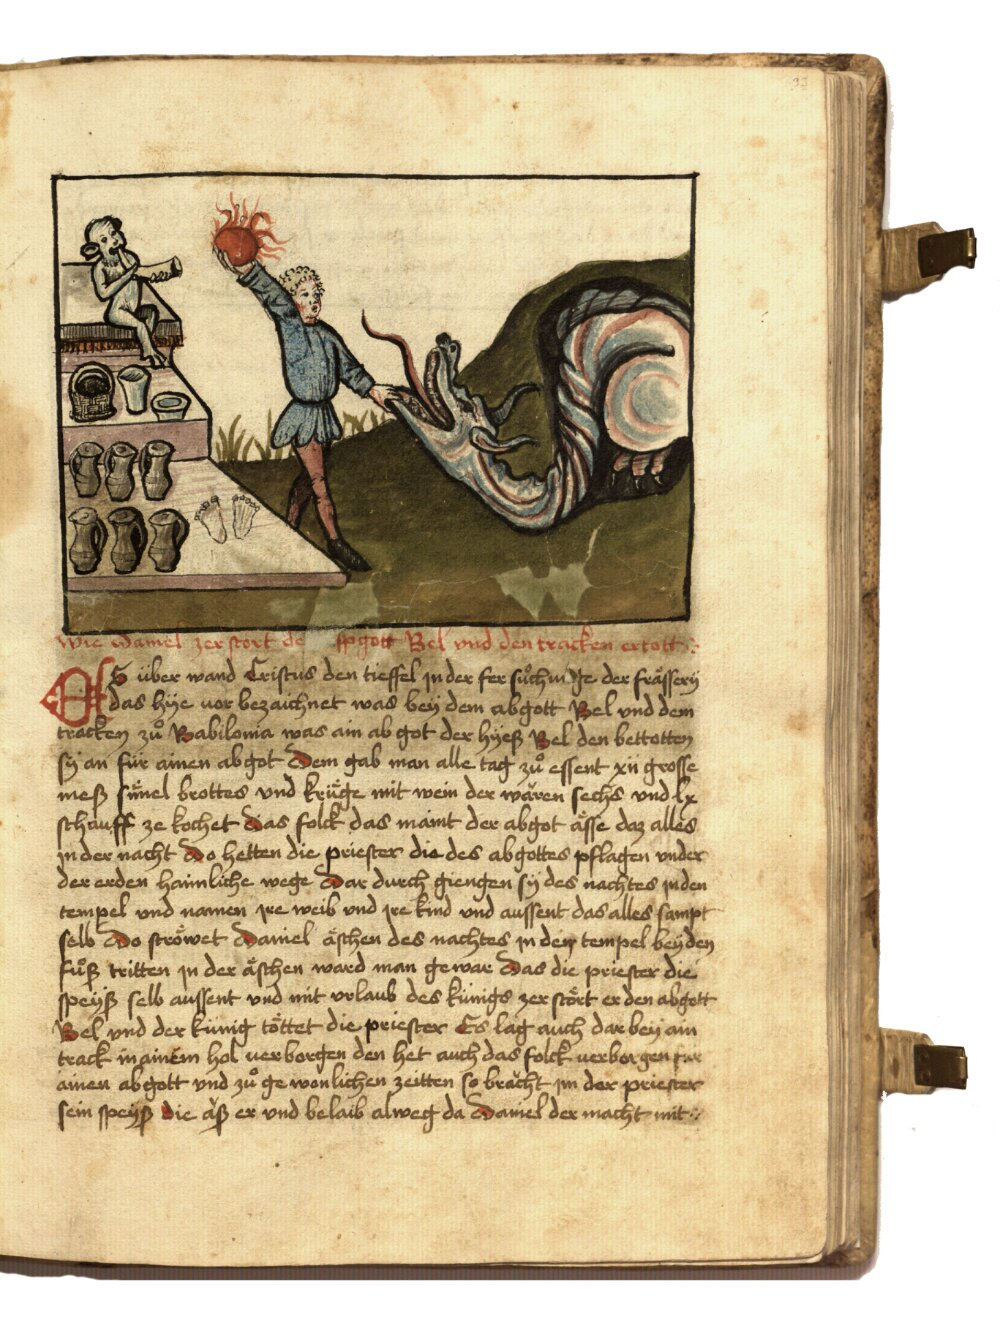 33
Wie daniel zerstort de apgott Bel vnd den tracken ertott
ES über wand Cristus den tieffel in der fer suͦchunge der fraͤsserÿ
das hÿe vor bezaichnet was beÿ dem abgott Bel vnd dem
tracken zuͦ Babilonia was ain ab got der hÿeß Bel den bettotten
sÿ an für ainen abgot Dem gab man alle tag zuͦ essent xii grosse
meß sümel brottes vnd kruͤge mit wein der wären sechs vnd lx
schauff ze kochet Das folck das maint der abgot aͤsse daz alles
in der nacht Do hetten die priester die des abgottes pflagen vnder
der erden haimliche wege Dar durch giengen sÿ des nachtes in den
tempel vnd namen ire weib vnd ire kind vnd aussent das alles sampt
selb Do ströwet Daniel äschen des nachtes in den tempel beÿ den
fuͦß tritten in der äschen ward man gewar Das die priester die
speÿß selb aussent vnd mit vrlaub des künigs zer stört er den abgott
Bel vnd der künig töttet die priester Es lag auch dar beÿ ain
track in ainem hol verborgen den het auch das folck verborgen für
ainen abgott vnd zuͦ gewonlichen zeitten so braͤcht im der priester
sein speÿß die aͤß er vnd belaib alweg da Daniel der macht mit